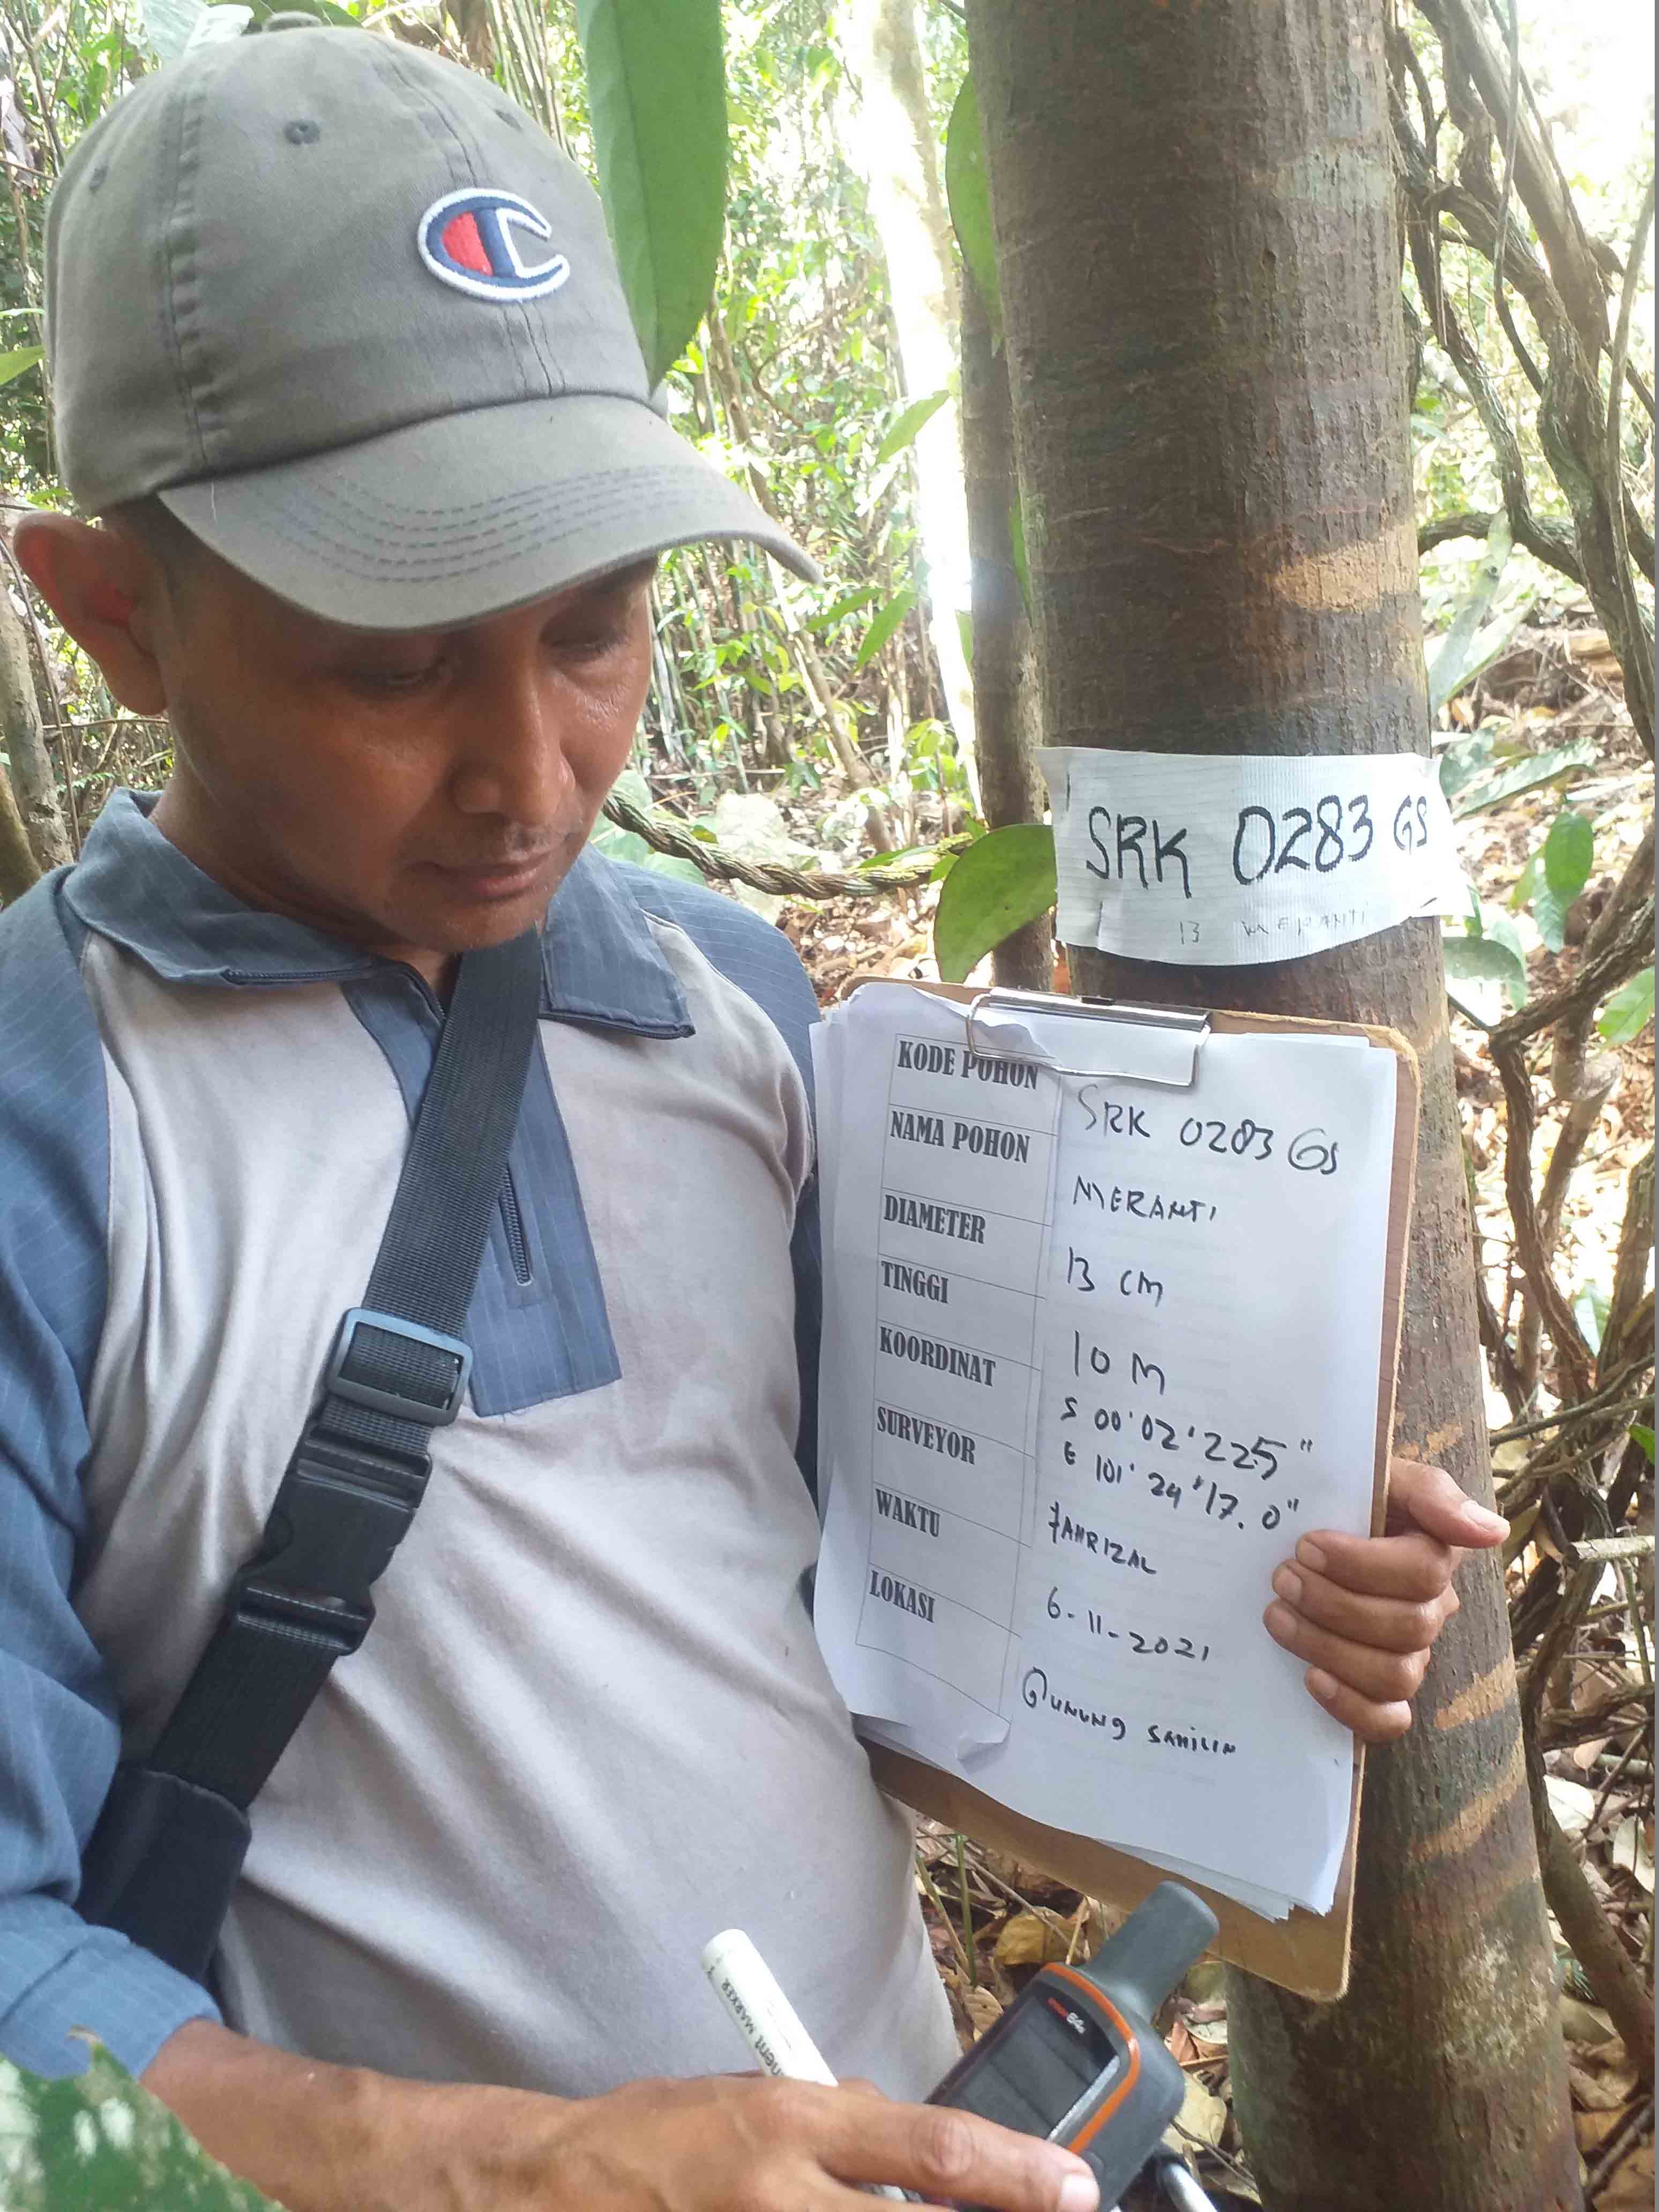 SRK 0283 GS
13 MERANTI
KODE POHON SRK 0283 GS
NAMA POHON MERANTI
DIAMETER 13 CM
TINGGI 10 M
KOORDINAT S 00'02'225"
E 101'24'17.0"
SURVEYOR FAHRIZAL
WAKTU 6-11-2021
LOKASI GUNUNG SAHILIN
MARKER
64s